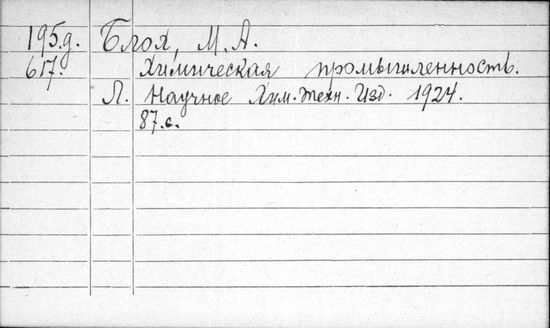 195.д. Блох, М. А.
617. Химическая промышленность.
Л. Научное Хим. Техн. Изд. 1924.
87.с.